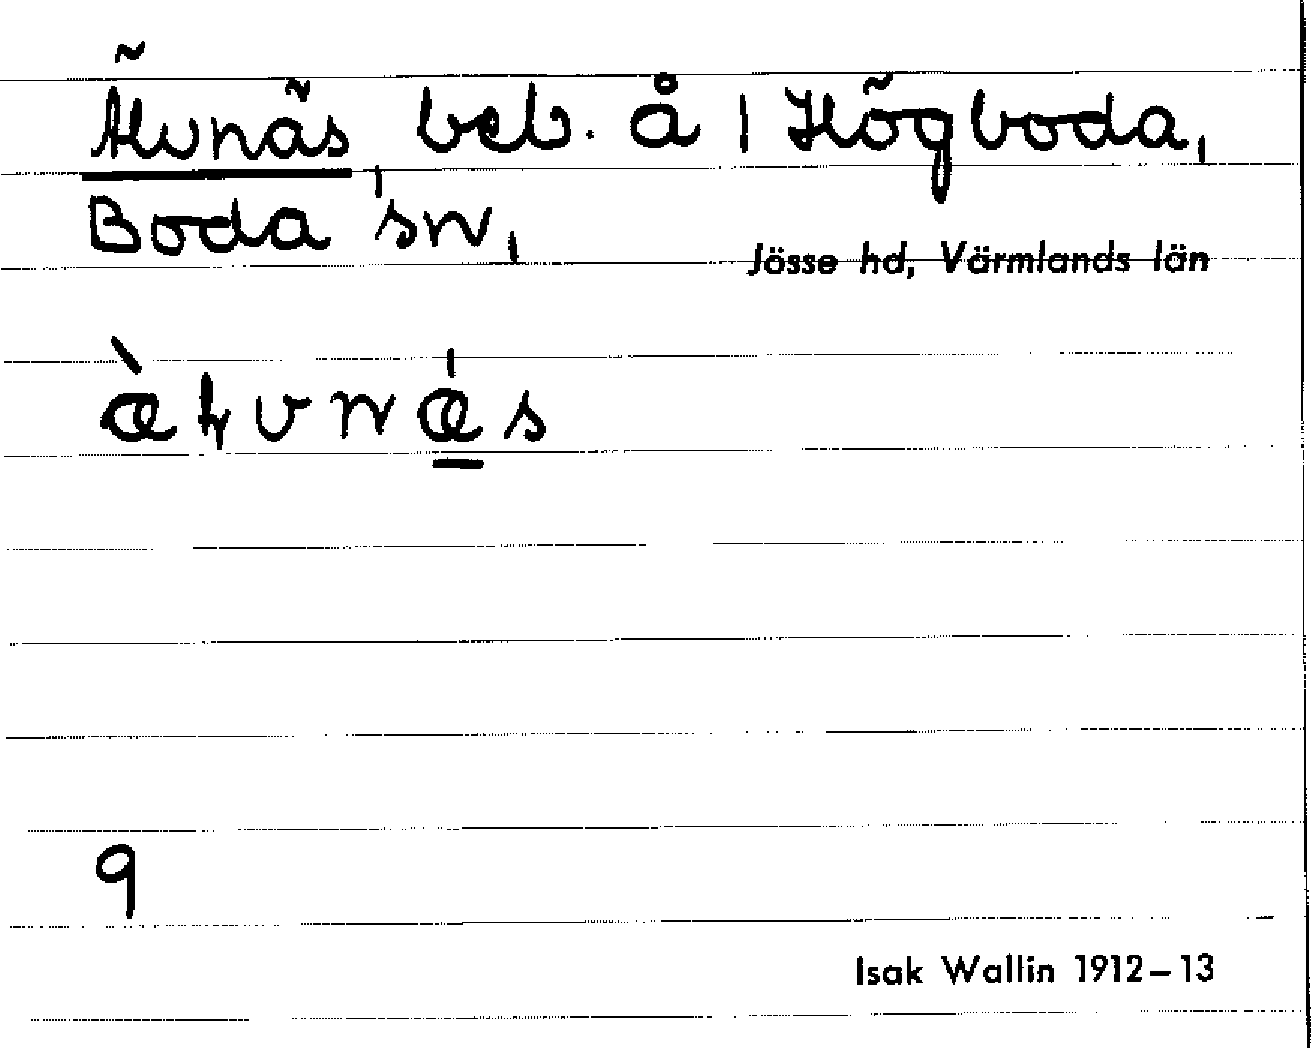 Älvnäs, beb. å 1 Högboda,
Boda sn,
Jösse hd, Värmlands län
9
Isak Wallin 1912–13